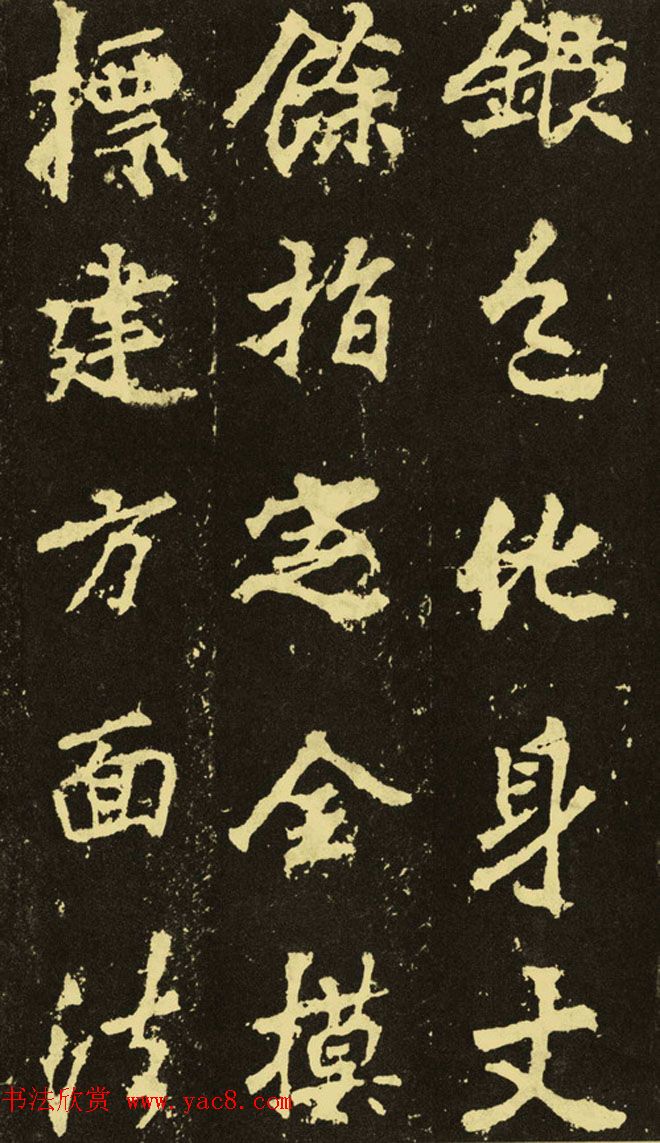 銀色化身丈
餘指定全模
標建方面法
书法欣赏 www.yac8.com